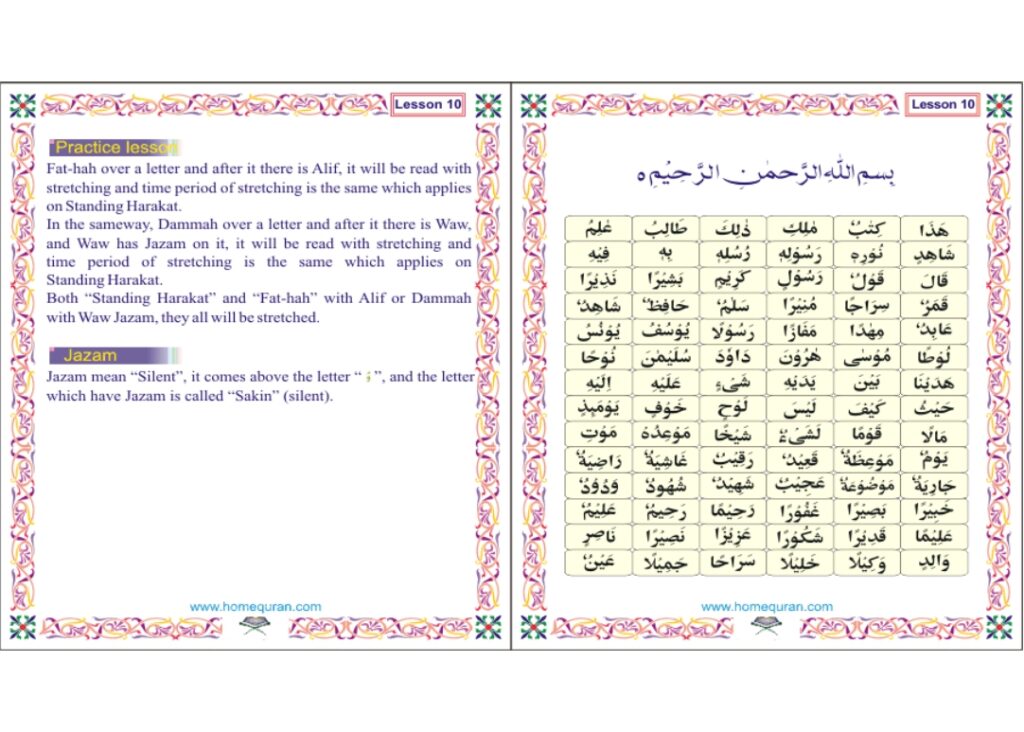 Lesson 10
Practice lesson
Fat-hah over a letter and after it there is Alif, it will be read with
stretching and time period of stretching is the same which applies
on Standing Harakat.
In the sameway, Dammah over a letter and after it there is Waw,
and Waw has Jazam on it, it will be read with stretching and
time period of stretching is the same which applies on
Standing Harakat.
Both “Standing Harakat” and “Fat-hah” with Alif or Dammah
with Waw Jazam, they all will be stretched.
Jazam
Jazam mean “Silent”, it comes above the letter “ وْ ”, and the letter
which have Jazam is called “Sakin” (silent).
www.homequran.com
Lesson 10
بِسْمِ اللّٰهِ الرَّحْمٰنِ الرَّحِيْمِ ٥
هَذَا كِتٰبٌ مٰلِكِ ذٰلِكَ طَالِبُ عٰلِمُ
شَاهِدٍ نُوْرِهٖ رَسُوْلِهٖ رُسُلِهٖ بِهٖ فِيْهِ
قَالَ قَوْلٌ رَسُوْلٍ كَرِيْمٍ بَشِيْرًا نَذِيْرًا
قَمَرٌ سِرَاجًا مُنِيْرًا سَلٰمٌ حَافِظٌ شَاهِدٌ
عَابِدٌ مِهٰدًا مَفَازًا رَسُوْلًا يُوْسُفُ يُوْنُسُ
لُوْطًا مُوْسٰى هٰرُوْنَ دَاوٗدَ سُلَيْمٰنَ نُوْحًا
هَدَيْنَا بَيْنَ يَدَيْهِ شَىْءٍ عَلَيْهِ اِلَيْهِ
حَيْثُ كَيْفَ لَيْسَ لَوْحٍ خَوْفٍ يَوْمَئِذٍ
مَالًا قَوْمًا لَشَىْءٌ شَيْخًا مَوْعِدُهٗ مَوْتِ
يَوْمٌ مَوْعِظَةٌ قَعِيْدٌ رَقِيْبٌ غَاشِيَةٌ رَاضِيَةٌ
جَارِيَةٌ مَوْضُوْعَةٌ عَجِيْبٌ شَهِيْدٌ شُهُوْدٌ وَدُوْدٌ
خَبِيْرًا بَصِيْرًا غَفُوْرًا رَحِيْمًا رَحِيْمٌ عَلِيْمٌ
عَلِيْمًا قَدِيْرًا شَكُوْرًا عَزِيْزًا نَصِيْرًا نَاصِرٍ
وَالِدٍ وَكِيْلًا خَلِيْلًا سَرَاحًا جَمِيْلًا عَيْنٌ
www.homequran.com